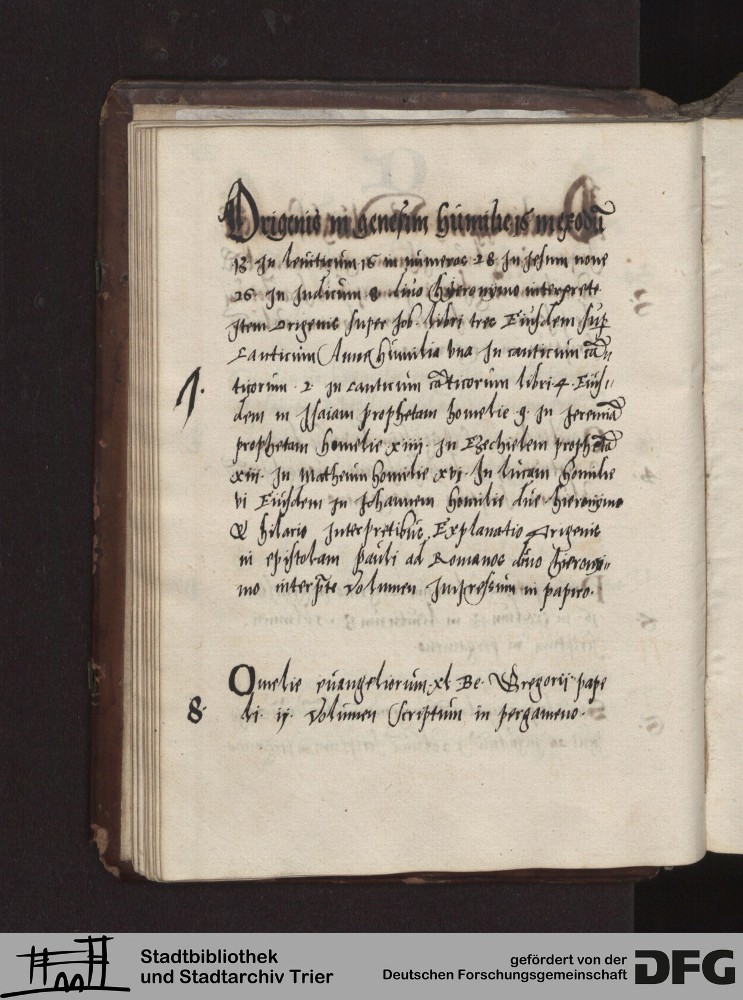 Origenis in genesim humilie 16 in exodū
13 In leuiticum 16 in numeros 28 In Jesum noue
26. In Judicum 8 diuo hyeronymo interprete
Item origenis super Job. libri tres Eiusdem sup
Canticum Anne humilia una In canticum cā
ticorum . 2. in canticum cāticorum libri .4. Eius
1. dem in Isaiam prophetam homelie .9. In Jeremiā
prophetam homelie xiiij. in Ezechielem prophetā
xiiij. In Matheum homilie xvj. In lucam homilie
vi Eiusdem in Johannem homilie due hieronymo
& hilario Interpretibus. Explanatio origenis
in epistolam pauli ad Romanos diuo hieroni=
mo interp̄te Volumen Impressum in papiro.
Omelie euangeliorum .xl. Be. Gregorij pape
8. li. ij. Volumen scriptum in pergameno.
Stadtbibliothek
und Stadtarchiv Trier
gefördert von der
Deutschen Forschungsgemeinschaft
DFG